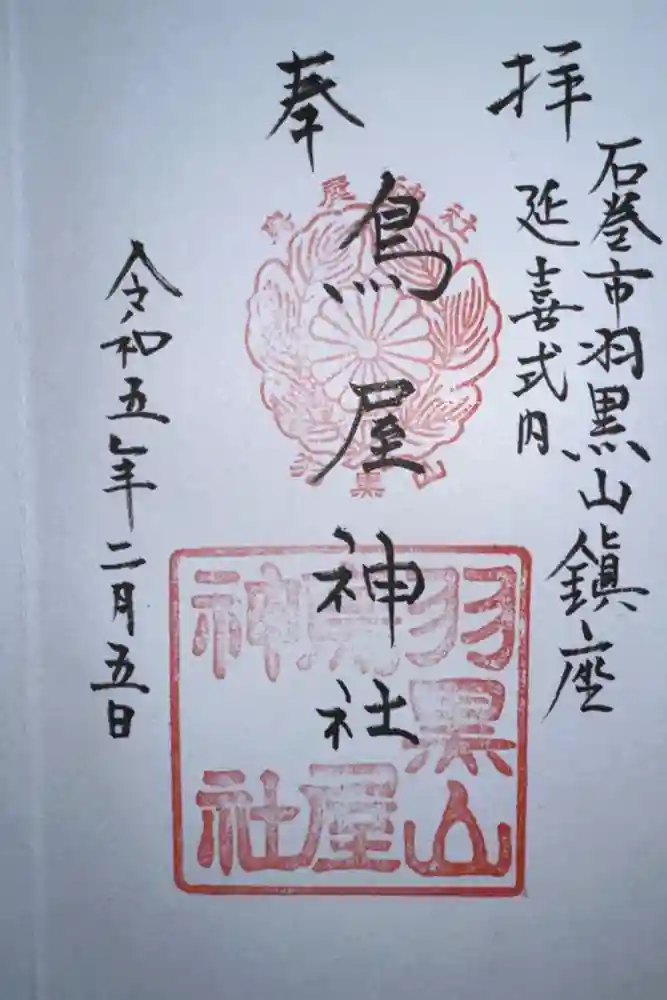 石巻市羽黒山鎮座
延喜式内
奉拝
鳥屋神社
令和五年二月五日
鳥屋神社
羽黒山
羽黒山
鳥屋
神社